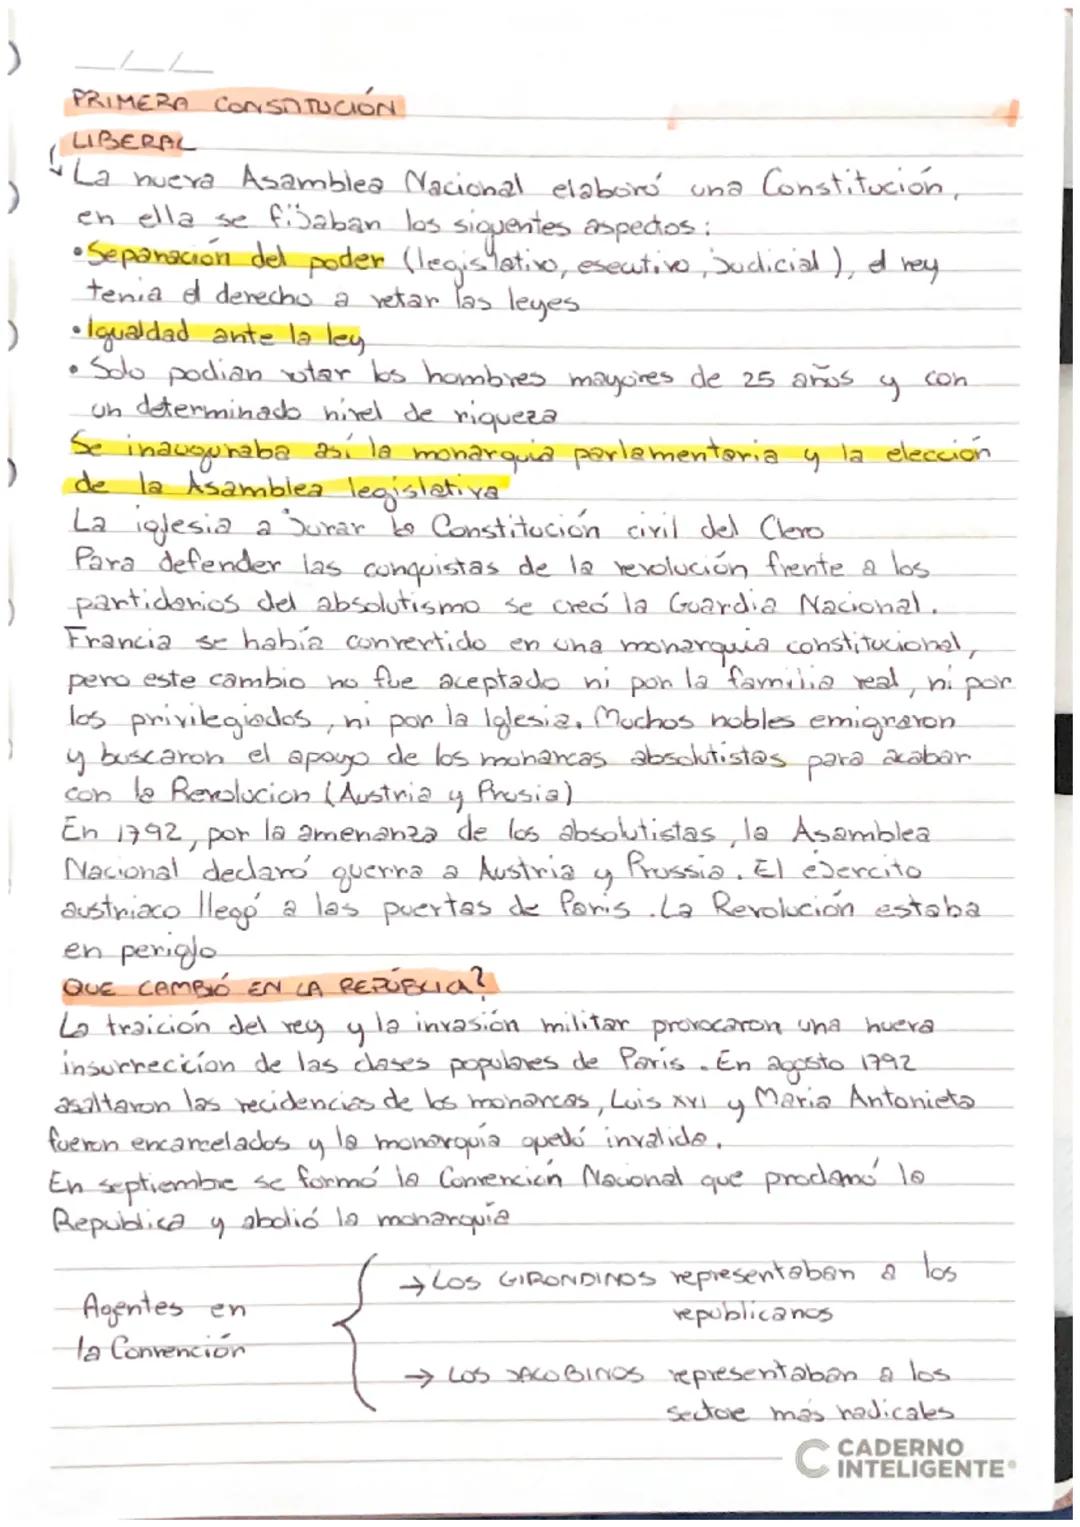 PRIMERA CONSTITUCIÓN
LIBERAL
La nueva Asamblea Nacional elaboró una Constitución,
en ella se fijaban los siguentes aspectos:
• Separación del poder (legislativo, esecutivo, judicial), el rey
tenia el derecho a vetar las leyes
• Igualdad ante la ley
• Solo podian votar los hombres mayores de 25 años y con
un determinado nivel de riqueza
Se inauguraba así la monarquia parlamentaria y la elección
de la Asamblea legislativa
La iglesia a jurar la Constitución civil del Clero
Para defender las conquistas de la revolución frente a los
partidarios del absolutismo se creó la Guardia Nacional.
Francia se había convertido en una monarquia constitucional,
pero este cambio no fue aceptado ni por la familia real, ni por
los privilegiados, ni por la Iglesia. Muchos nobles emigraron
y buscaron el apoyo de los monarcas absolutistas para acabar
con la Revolucion (Austria y Prusia)
En 1792, por la amenanza de los absolutistas, la Asamblea
Nacional declaró guerra a Austria y Prussia. El ejercito
austriaco llegó a las puertas de Paris. La Revolución estaba
en periglo
QUE CAMBIÓ EN LA REPÚBLICA?
La traición del rey y la invasión militar provocaron una nueva
insurrección de las clases populares de Paris. En agosto 1792
asaltaron las recidencias de los monarcas, Luis XVI y Maria Antonieta
fueron encarcelados y la monarquía quedó invalida.
En septiembre se formó la Convención Nacional que proclamó la
Republica y abolió la monarquía
Agentes en
la Convención
→ LOS GIRONDINOS representaban a los
republicanos
→ LOS JACOBINOS representaban a los
sectore más radicales
CADERNO
INTELIGENTE®